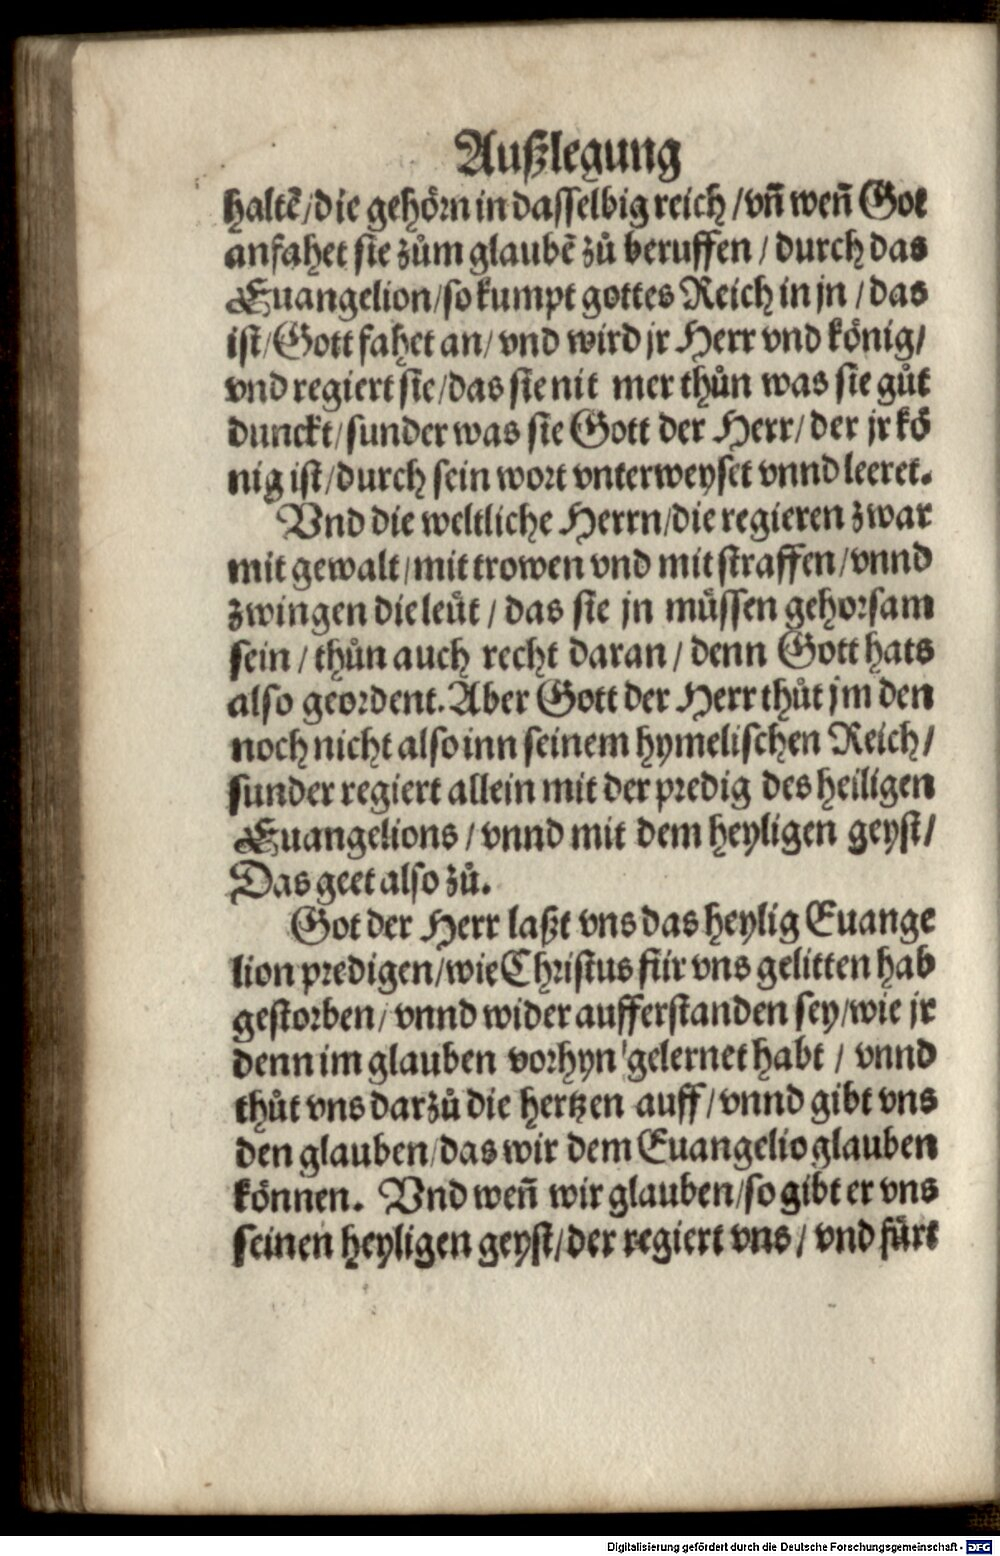 Außlegung
haltẽ/die gehörn in dasselbig reich/vñ weñ Got
anfahet sie zům glaubẽ zů beruffen/durch das
Euangelion/so kumpt gottes Reich in jn/das
ist/Gott fahet an/vnd wird jr Herr vnd könig/
vnd regiert sie/das sie nit mer thůn was sie gůt
dunckt/sunder was sie Gott der Herr/der jr kö
nig ist/durch sein wort vnterweyset vnnd leeret.
Vnd die weltliche Herrn/die regieren zwar
mit gewalt/mit trowen vnd mit straffen/vnnd
zwingen die leüt/das sie jn müssen gehorsam
sein/thůn auch recht daran/denn Gott hats
also geordent. Aber Gott der Herr thůt jm den
noch nicht also inn seinem hymelischen Reich/
sunder regiert allein mit der predig des heiligen
Euangelions/vnnd mit dem heyligen geyst/
Das geet also zů.
Got der Herr laßt vns das heylig Euange
lion predigen/wie Christus für vns gelitten hab
gestorben/vnnd wider aufferstanden sey/wie jr
denn im glauben vorhyn gelernet habt/vnnd
thůt vns darzů die hertzen auff/vnnd gibt vns
den glauben/das wir dem Euangelio glauben
können. Vnd weñ wir glauben/so gibt er vns
seinen heyligen geyst/der regiert vns/vnd fürt
Digitalisierung gefördert durch die Deutsche Forschungsgemeinschaft - DFG